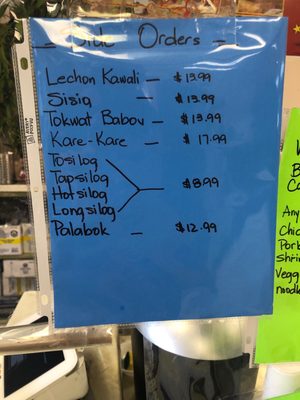 Side Orders
Lechon Kawali — $13.99
Sisig — $13.99
Tokwat Baboy — $13.99
Kare-Kare — $17.99
Tosilog
Tapsilog
Hotsilog
Longsilog
$8.99
Palabok — $12.99
Any
Chic
Pork
Shri
Vegg
noodl